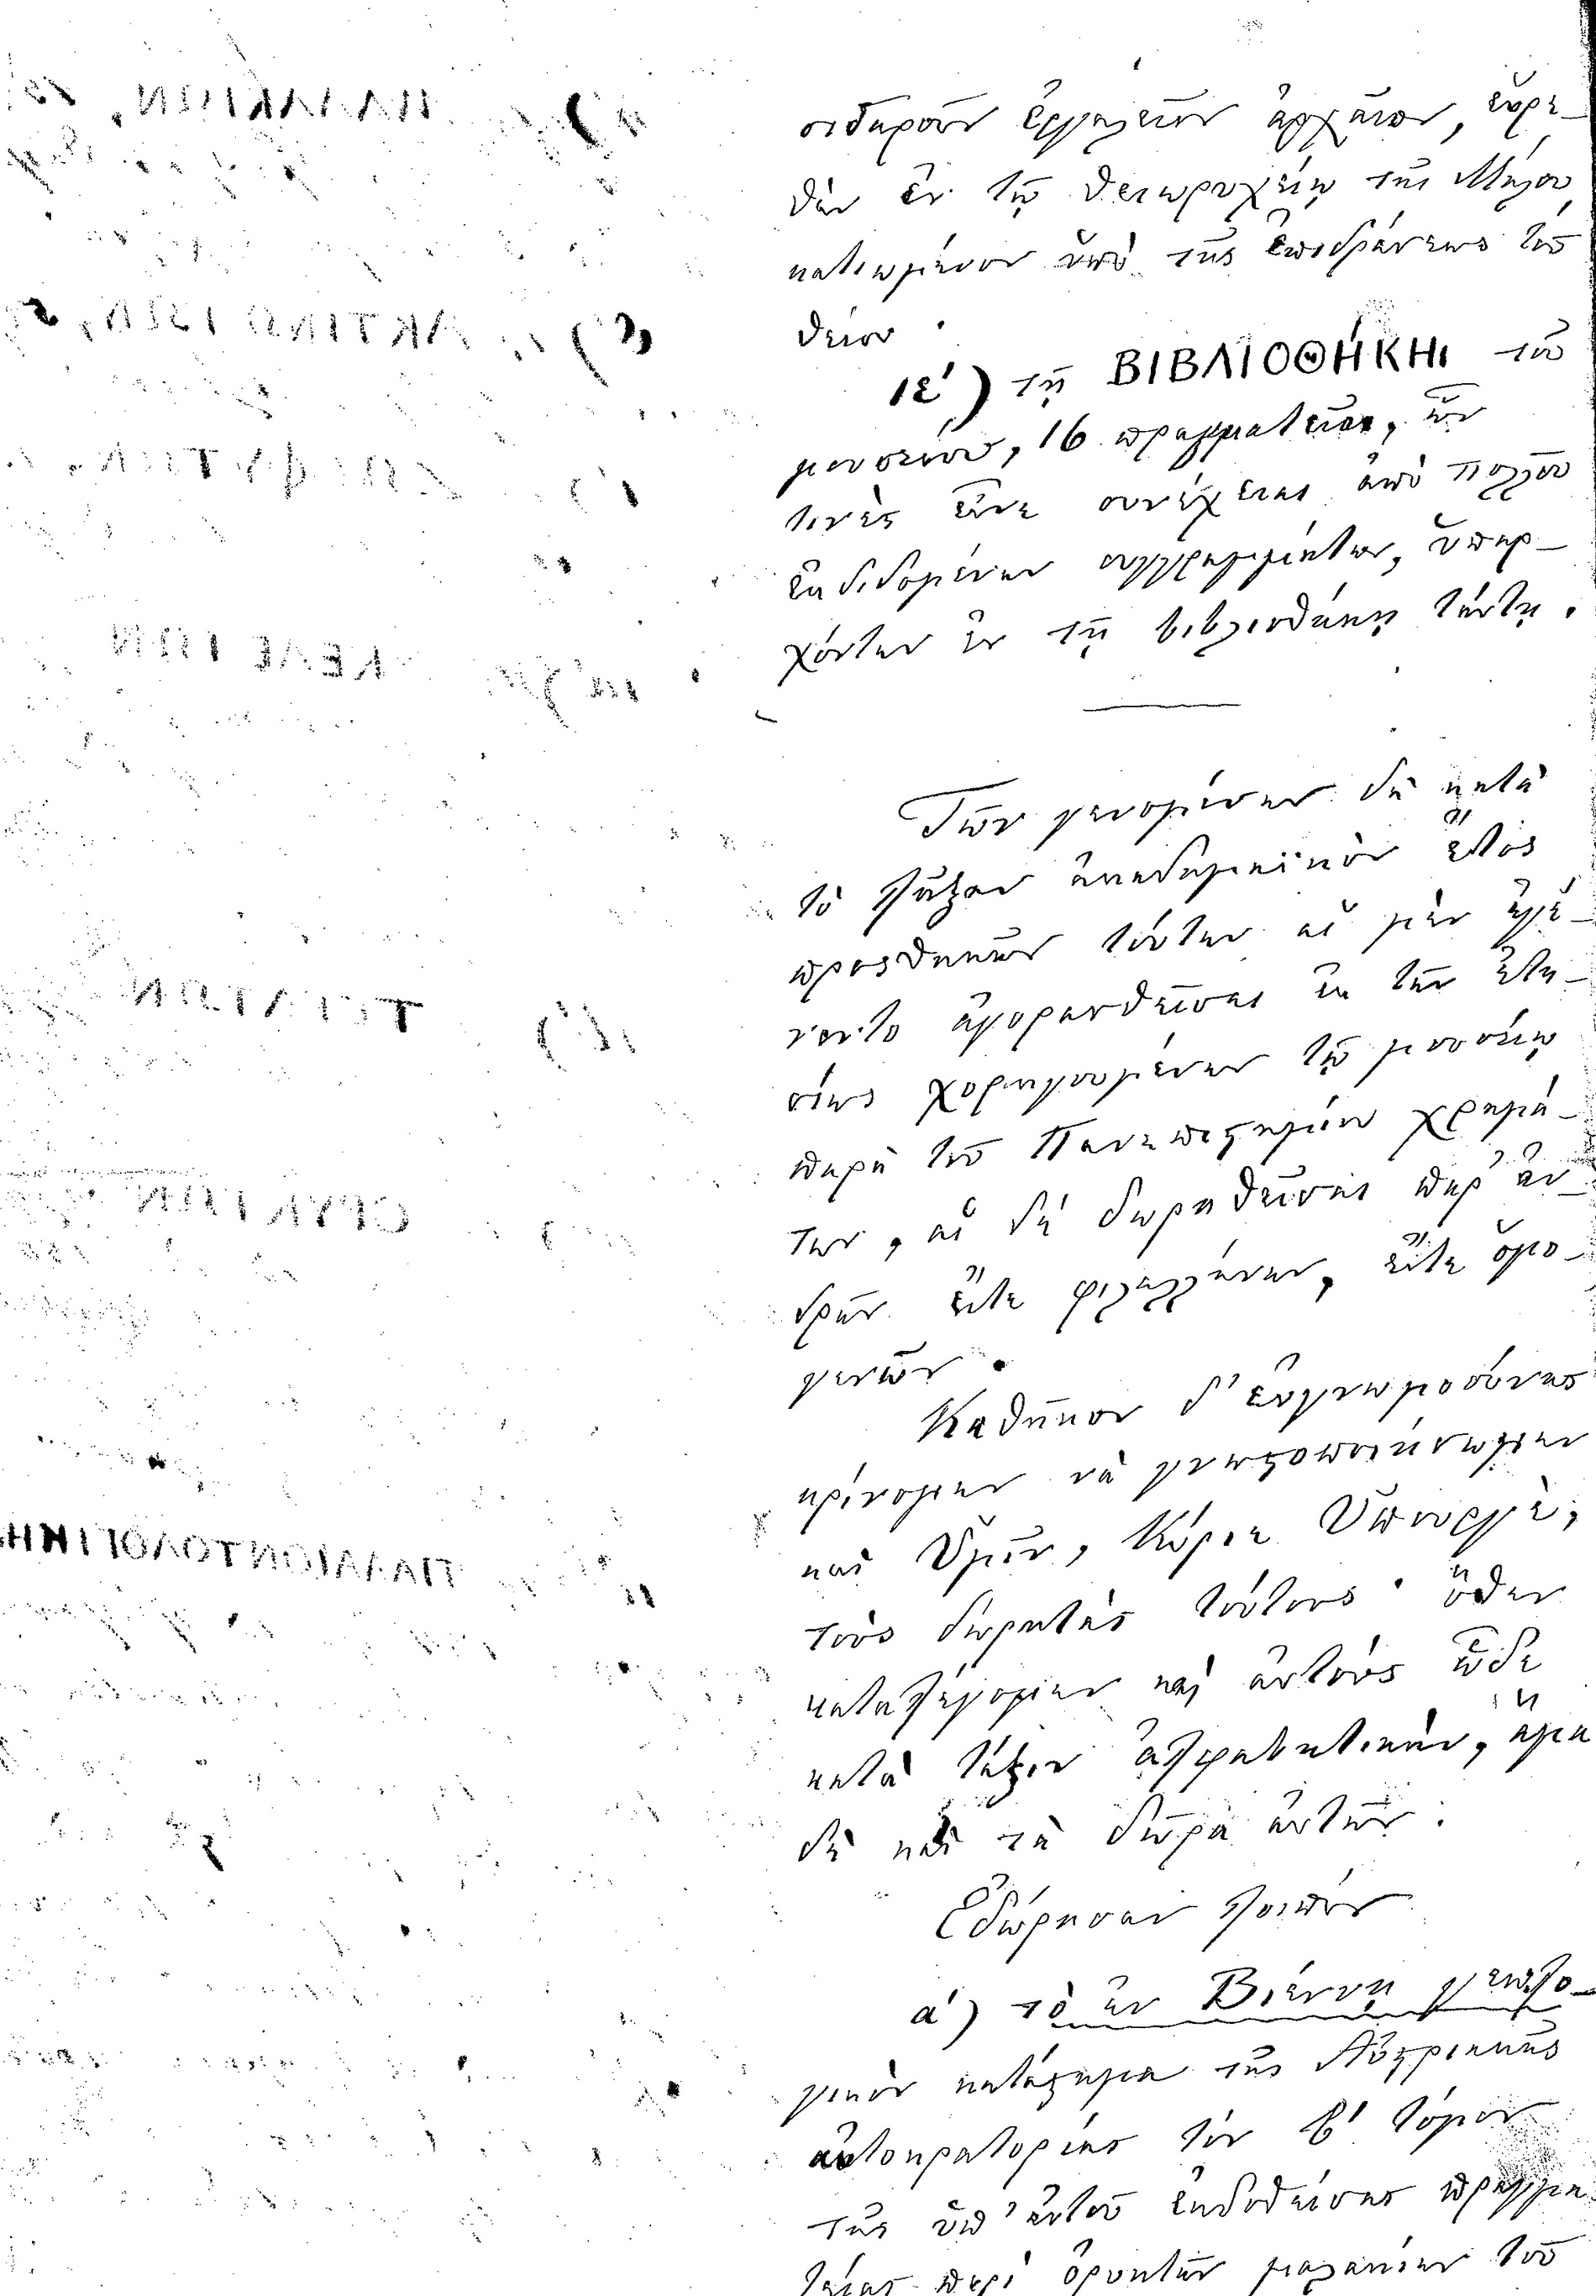 σιδηροῦν ἐργαλεῖον ἀρχαῖον, εὑρε-
θὲν ἐν τῷ θειωρυχείῳ τῆς Μήλου,
κατιωμένον ὑπὸ τῆς ἐπιδράσεως τοῦ
θείου.
ιε´) τῇ ΒΙΒΛΙΟΘΉΚΗι τοῦ
μουσείου, 16 πραγματεῖαι, ὧν
τινὲς εἶνε συνέχειαι ἀπὸ πολλοῦ
ἐκδιδομένων συγγραμμάτων, ὑπαρ-
χόντων ἐν τῇ βιβλιοθήκῃ ταύτῃ.
Τῶν γενομένων δὲ κατὰ
τὸ λῆξαν ἀκαδημαϊκὸν ἔτος
προσθηκῶν τούτων αἱ μὲν ἐγέ-
νοντο ἀγορασθεῖσαι ἐκ τῶν ἐτη-
σίως χορηγουμένων τῷ μουσείῳ
παρὰ τοῦ Πανεπιστημίου χρημά-
των, αἱ δὲ δωρηθεῖσαι παρ' ἀν-
δρῶν εἴτε φιλελλήνων, εἴτε ὁμο-
γενῶν.
Καθῆκον δ' εὐγνωμοσύνης
κρίνομεν νὰ γνωστοποιήσωμεν
καὶ Ὑμῖν, Κύριε Ὑπουργὲ,
τοὺς δωρητὰς τούτους· ὅθεν
καταλέγομεν καὶ αὐτοὺς ὧδε
κατὰ τάξιν ἀλφαβητικὴν, ἅμα
δὲ καὶ τὰ δῶρα αὐτῶν:
Ἐδώρησαν λοιπὸν
α´) τὸ ἐν Βιέννῃ γεωλο-
γικὸν κατάστημα τῆς Αὐστριακῆς
αὐτοκρατορίας τὸν β´ τόμον
τῆς ὑπ' αὐτοῦ ἐκδοθείσης πραγμα-
τείας περὶ ὀρυκτῶν μαλακίων τοῦ